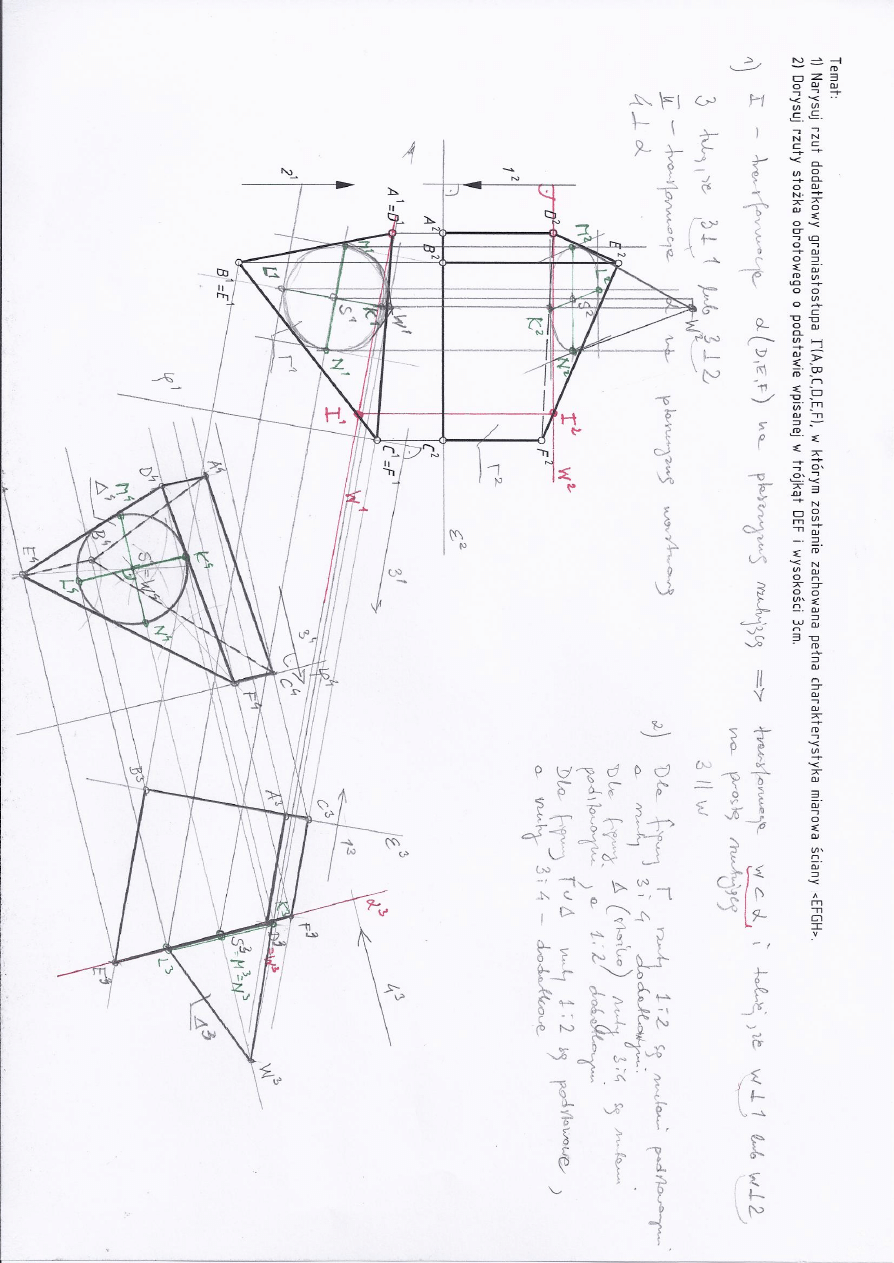 Temat:
1) Narysuj rzut dodatkowy graniastosłupa Γ(A,B,C,D,E,F), w którym zostanie zachowana pełna charakterystyka miarowa ściany <EFGH>.
2) Dorysuj rzuty stożka obrotowego o podstawie wpisanej w trójkąt DEF i wysokości 3cm.
1) I - transformacja α(D,E,F) na płaszczyznę rzutującą => transformacja w⊂α i takiej, że w⊥1 lub w⊥2
na prostą rzutującą
3 taką, że 3⊥1 lub 3⊥2
3 || w
II - transformacja α na płaszczyznę
4⊥α
2) Dla figury Γ rzuty 1 i 2 są rzutami podstawowymi
a rzuty 3 i 4 dodatkowymi.
Dla figury Δ (stożka) rzuty 3 i 4 są rzutami
podstawowymi, a 1 i 2 dodatkowymi
Dla figury Γ∪Δ rzuty 1 i 2 są podstawowe,
a rzuty 3 i 4 - dodatkowe
1²
D²
E²
M²
L²
S²
W²
K²
N²
I²
F²
W²
A²
B²
C²
Γ²
ε²
2¹
A¹=D¹
M¹
L¹
S¹
K¹
W¹
N¹
B¹=E¹
Γ¹
I¹
C¹=F¹
W¹
φ¹
3¹
A⁴
D⁴
M⁴
Δ⁴
B⁴
K⁴
S⁴=W⁴
L⁴
N⁴
E⁴
C⁴
F⁴
φ⁴
3⁴
B³
A³
C³
1³
ε³
K³
F³
α³
S³=M³=N³
L³
E³
Δ³
W³
4³